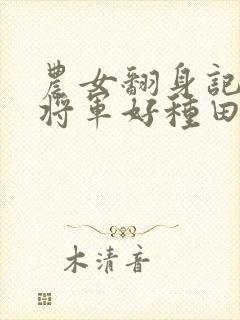 農女翻身記
將軍好種田
木清音